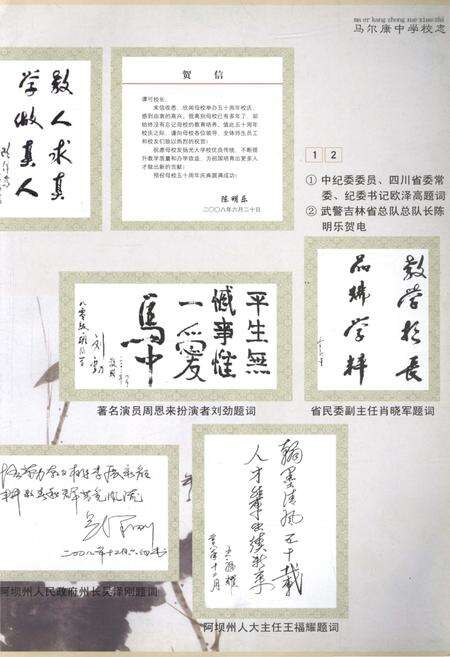 ma er kang zhong xue xiao zhi
马尔康中学校志
教人求真
学做真人
贺信
谭可校长:
来信收悉,欣闻母校举办五十周年校庆,
感到由衷的高兴。我离别母校已有多年了,却
始终没有忘记母校的教育培养。值此五十周年
校庆之际,谨向母校各位领导、全体师生员工
和校友们致以热烈的祝贺!
祝愿母校发扬光大学校优良传统,不断提
升教学质量和办学效益,为祖国培育出更多人
才做出新的贡献!
预祝母校五十周年庆典圆满成功!
陈明乐
二〇〇八年六月二十日
1 2
① 中纪委委员、四川省委常
委、纪委书记欧泽高题词
② 武警吉林省总队总队长陈
明乐贺电
平生无
憾事惟
一爱
马中
刘劲
著名演员周恩来扮演者刘劲题词
教学相长
品端学粹
省民委副主任肖晓军题词
吴泽刚
二〇〇八年十二月
阿坝州人民政府州长吴泽刚题词
翰墨清风五十载
人才辈出续新章
王福耀
阿坝州人大主任王福耀题词